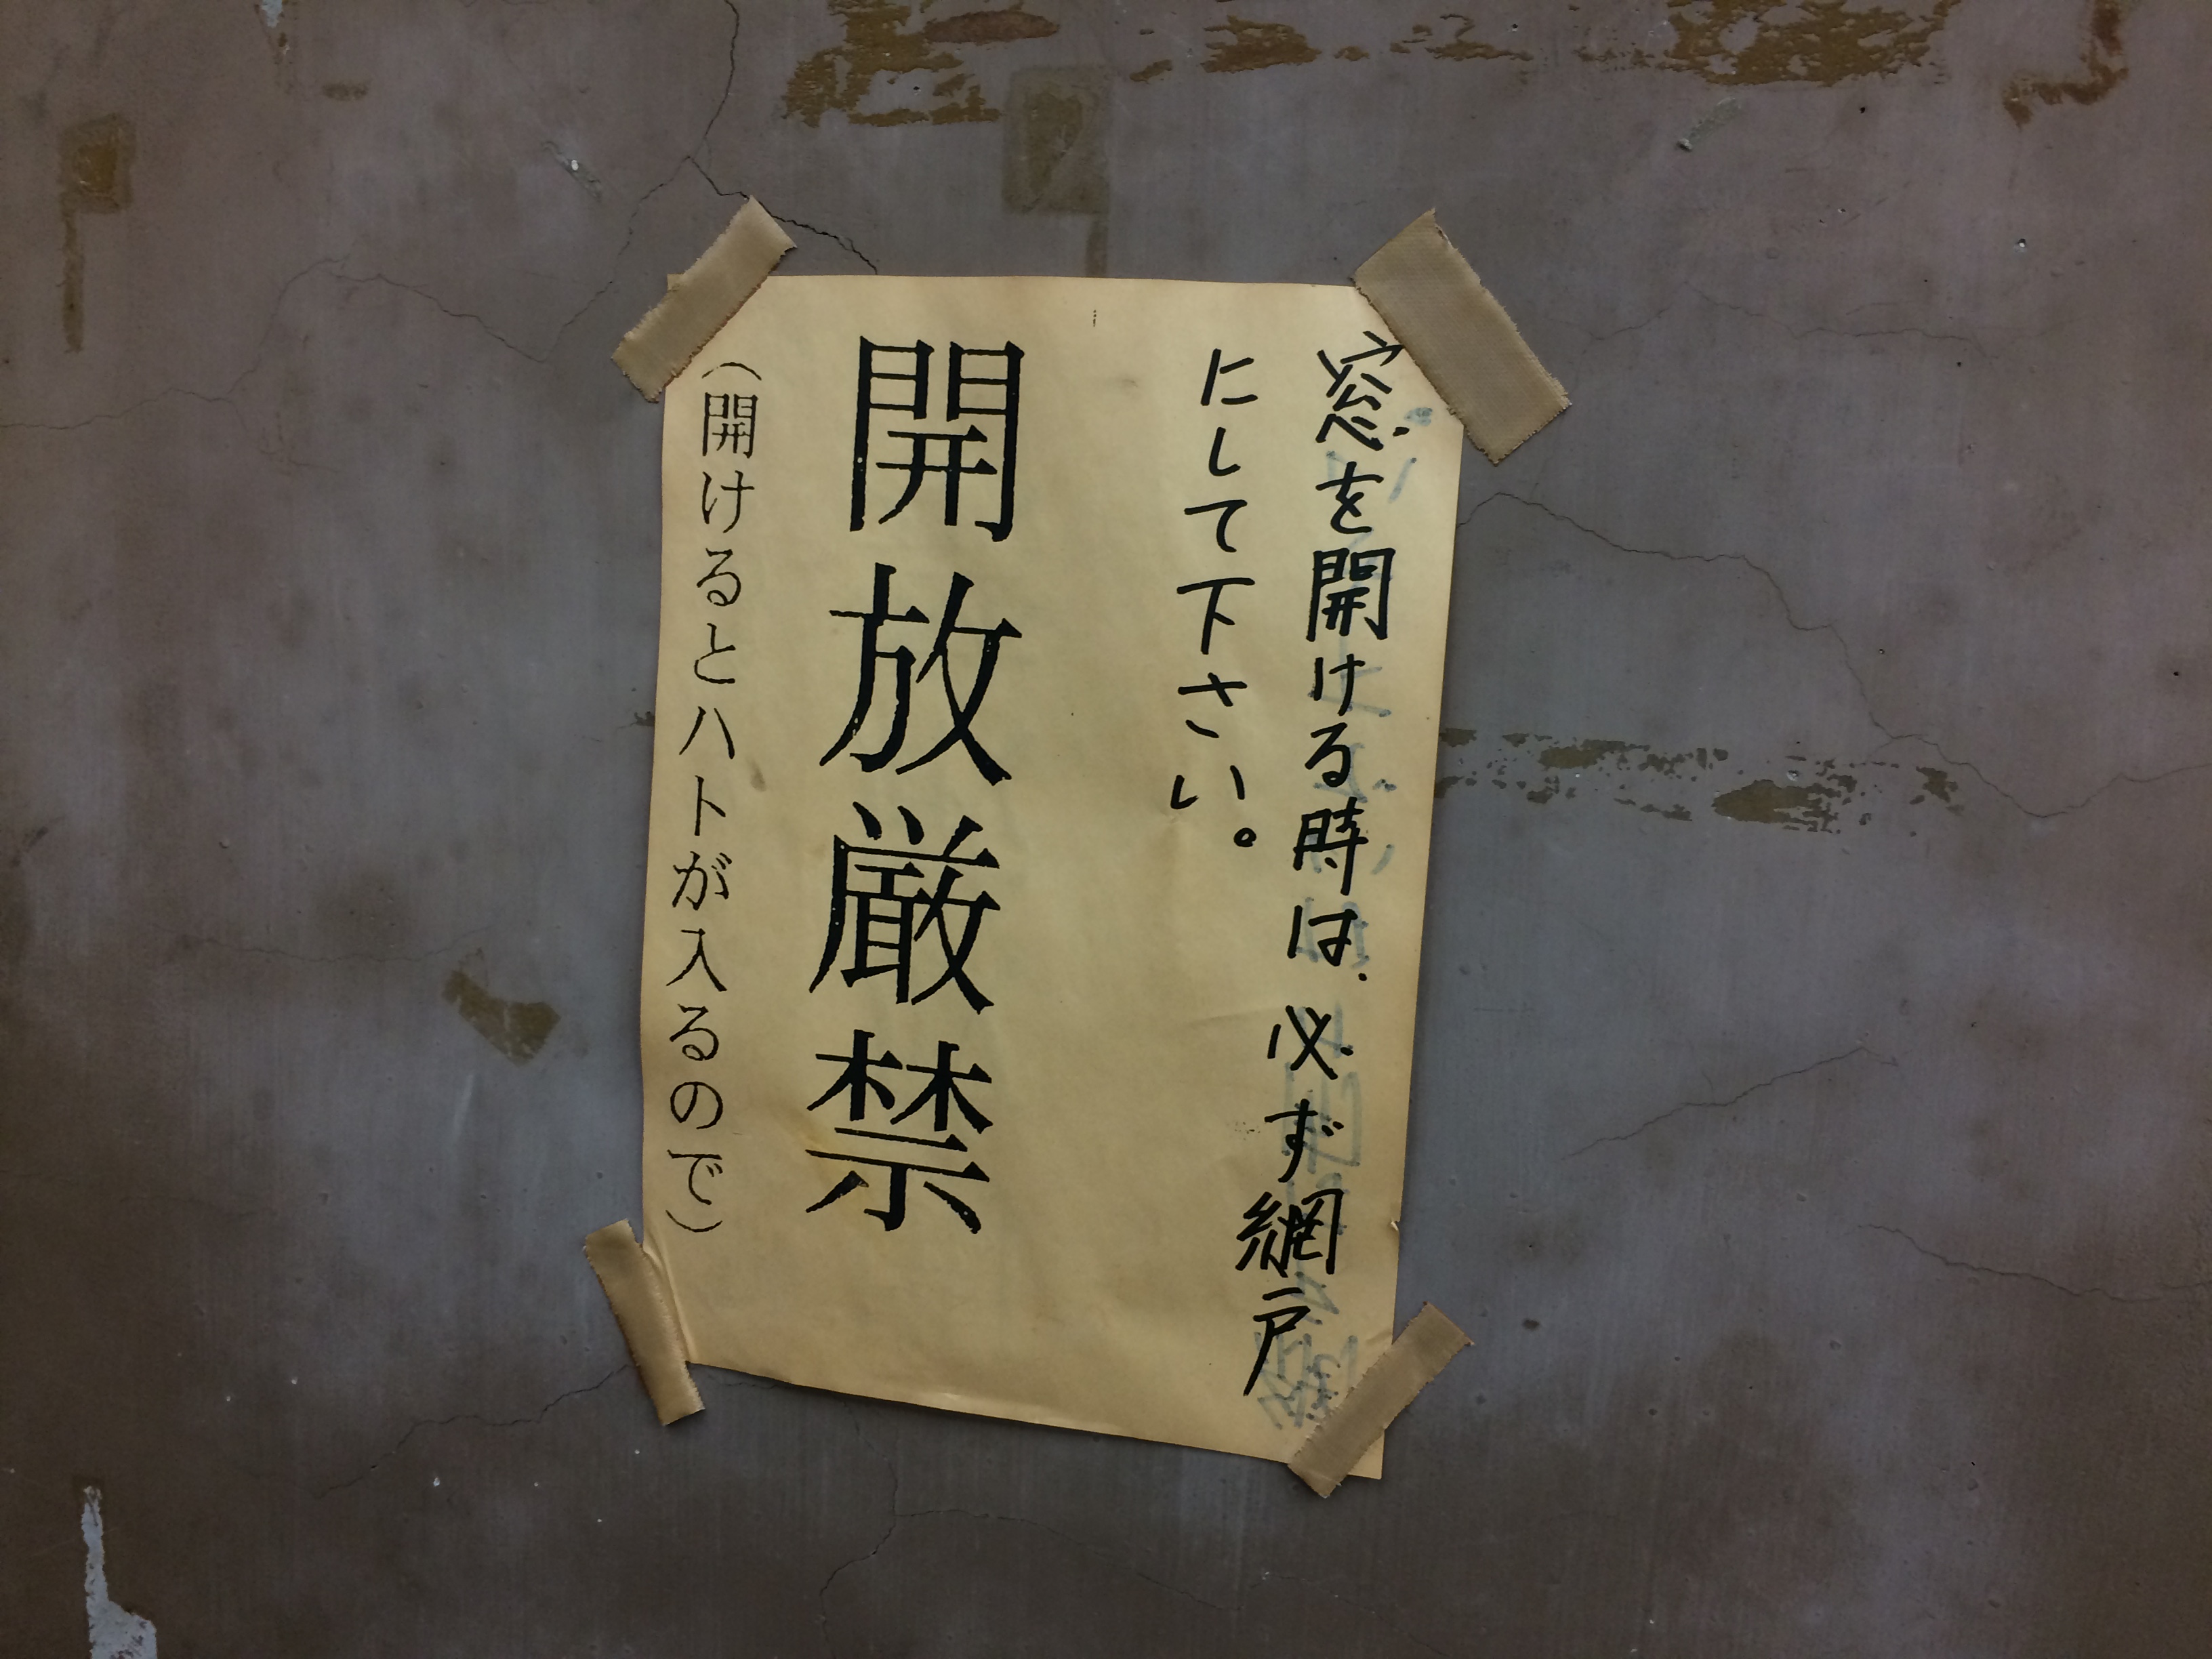 窓を開ける時は、必ず網戸
にして下さい。
開放厳禁
（開けるとハトが入るので）